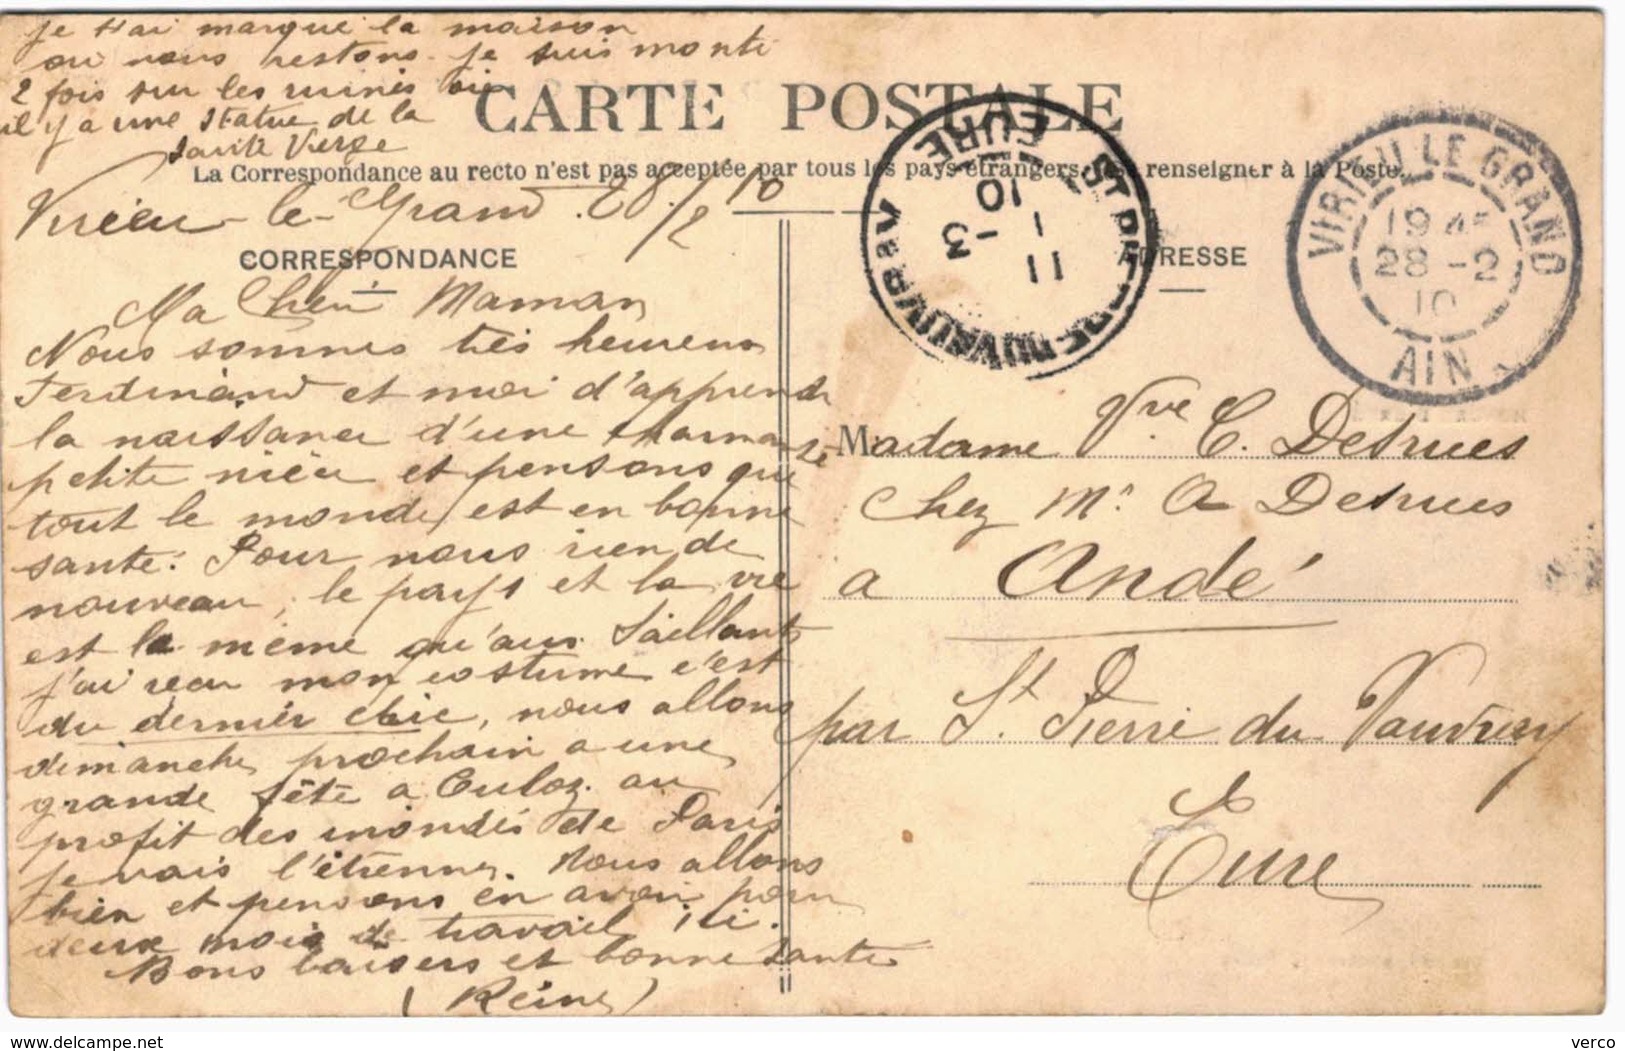 je t'ai marqué la maison
ou nous restons. je suis monté
2 fois sur les ruines ou
il y a une statue de la
Sainte Vierge
CARTE POSTALE
La Correspondance au recto n'est pas acceptée par tous les pays étrangers. renseigner à la Poste.
Virieu-le-Grand. 28/2 10
CORRESPONDANCE
Ma Chère Maman
Nous sommes très heureux
Ferdinand et moi d'apprendre
la naissance d'une charmante
petite nièce et pensons que
tout le monde est en bonne
santé. Pour nous rien de
nouveau, le pays et la vie
est la même qu'aux Saillants
j'ai reçu mon costume c'est
du dernier chic, nous allons
dimanche prochain a une
grande fête a Culoz. au
profit des inondés de Paris
je vais l'étrenner. Nous allons
bien et pensons en avoir pour
deux mois de travail ici.
Bons baisers et bonne santé
(Reine)
ST PIERRE DU VAUVRAY
11
1 - 3
10
EURE
VIRIEU LE GRAND
19 45
28 - 2
10
AIN
ADRESSE
Madame Vve C. Detrues
Chez Mr A Detrues
a Andé
par St Pierre du Vauvray
Eure
delcampe.net
verco